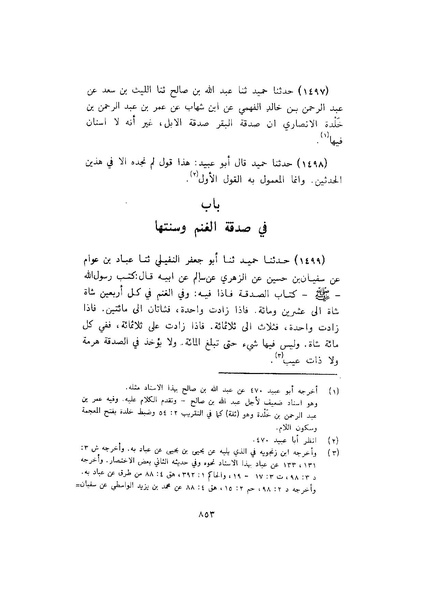 (١٤٩٧) حدثنا حميد ثنا عبد الله بن صالح ثنا الليث بن سعد عن
عبد الرحمن بن خالد الفهمي عن ابن شهاب عن عمر بن عبد الرحمن بن
خَلْدة الانصاري ان صدقة البقر صدقة الابل، غير أنه لا اسنان
فيها(١).
(١٤٩٨) حدثنا حميد قال أبو عبيد: هذا قول لم نجده الا في هذين
الحدثين. وانما المعمول به القول الأول(٢).
باب
في صدقة الغنم وسنتها
(١٤٩٩) حدثنا حميد ثنا أبو جعفر النفيلي ثنا عباد بن عوام
عن سفيان بن حسين عن الزهري عن سالم عن ابيه قال: كتب رسول الله
- ﷺ - كتاب الصدقة فاذا فيه: وفي الغنم في كل أربعين شاة
شاة الى عشرين ومائة. فاذا زادت واحدة، فشاتان الى مائتين. فاذا
زادت واحدة، فثلاث الى ثلاثمائة. فاذا زادت على ثلاثمائة، ففي كل
مائة شاة. وليس فيها شيء حتى تبلغ المائة. ولا يؤخذ في الصدقة هرمة
ولا ذات عيب(٣).
(١) أخرجه أبو عبيد ٤٧٠ عن عبد الله بن صالح بهذا الاسناد مثله.
وهو اسناد ضعيف لأجل عبد الله بن صالح - وتقدم الكلام عليه. وفيه عمر بن
عبد الرحمن بن خَلْدة وهو (ثقة) كما في التقريب ٢: ٥٤ وضبط خلدة بفتح المعجمة
وسكون اللام.
(٢) انظر أبا عبيد ٤٧٠.
(٣) وأخرجه ابن زنجويه في الذي يليه عن يحيى بن يحيى عن عباد به. وأخرجه ش ٣:
١٣١، ١٣٣ عن عباد بهذا الاسناد نحوه وفي حديثه الثاني بعض الاختصار. وأخرجه
د ٢: ٩٨، ت ٣: ١٧ - ١٩، والحاكم ١: ٣٩٢، هق ٤: ٨٨ من طرق عن عباد به.
وأخرجه د ٢: ٩٨، حم ٢: ١٥، هق ٤: ٨٨ عن محمد بن يزيد الواسطي عن سفيان=
٨٥٣